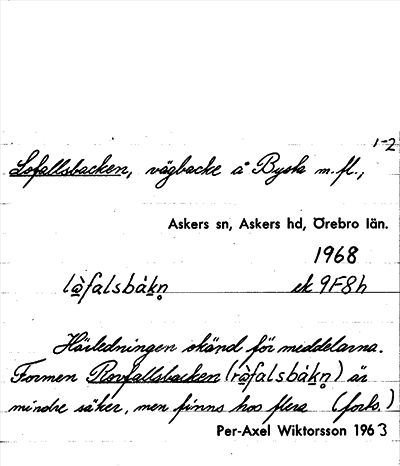 1-2
Lofallsbacken, vägbacke å Bysta m.fl.,
Askers sn, Askers hd, Örebro län.
1968
lo̱̊̀falsbákn̥ ek 9F8h
Härledningen okänd för meddelarna.
Formen Rovfallsbacken (ro̱̊̀falsbákn̥) är
mindre säker, men finns hos flera (forts.)
Per-Axel Wiktorsson 1963